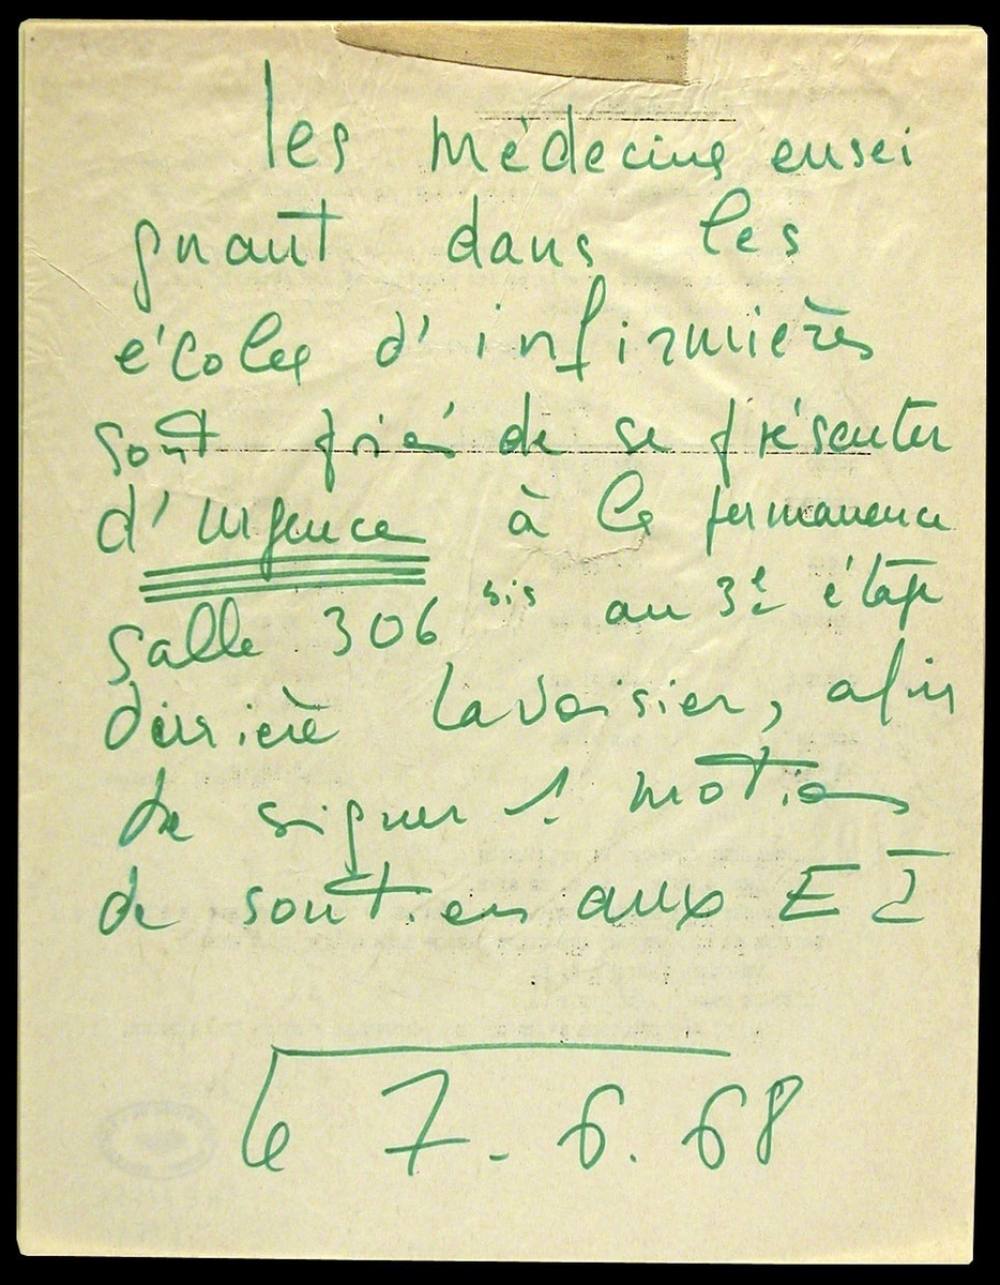 les médecins ensei
gnant dans les
écoles d'infirmières
sont prié de se présenter
d'urgence à la permanence
salle 306 bis au 3e étage
derrière Lavoisier, afin
de signer 1 motion
de soutien aux E I
le 7-6.68